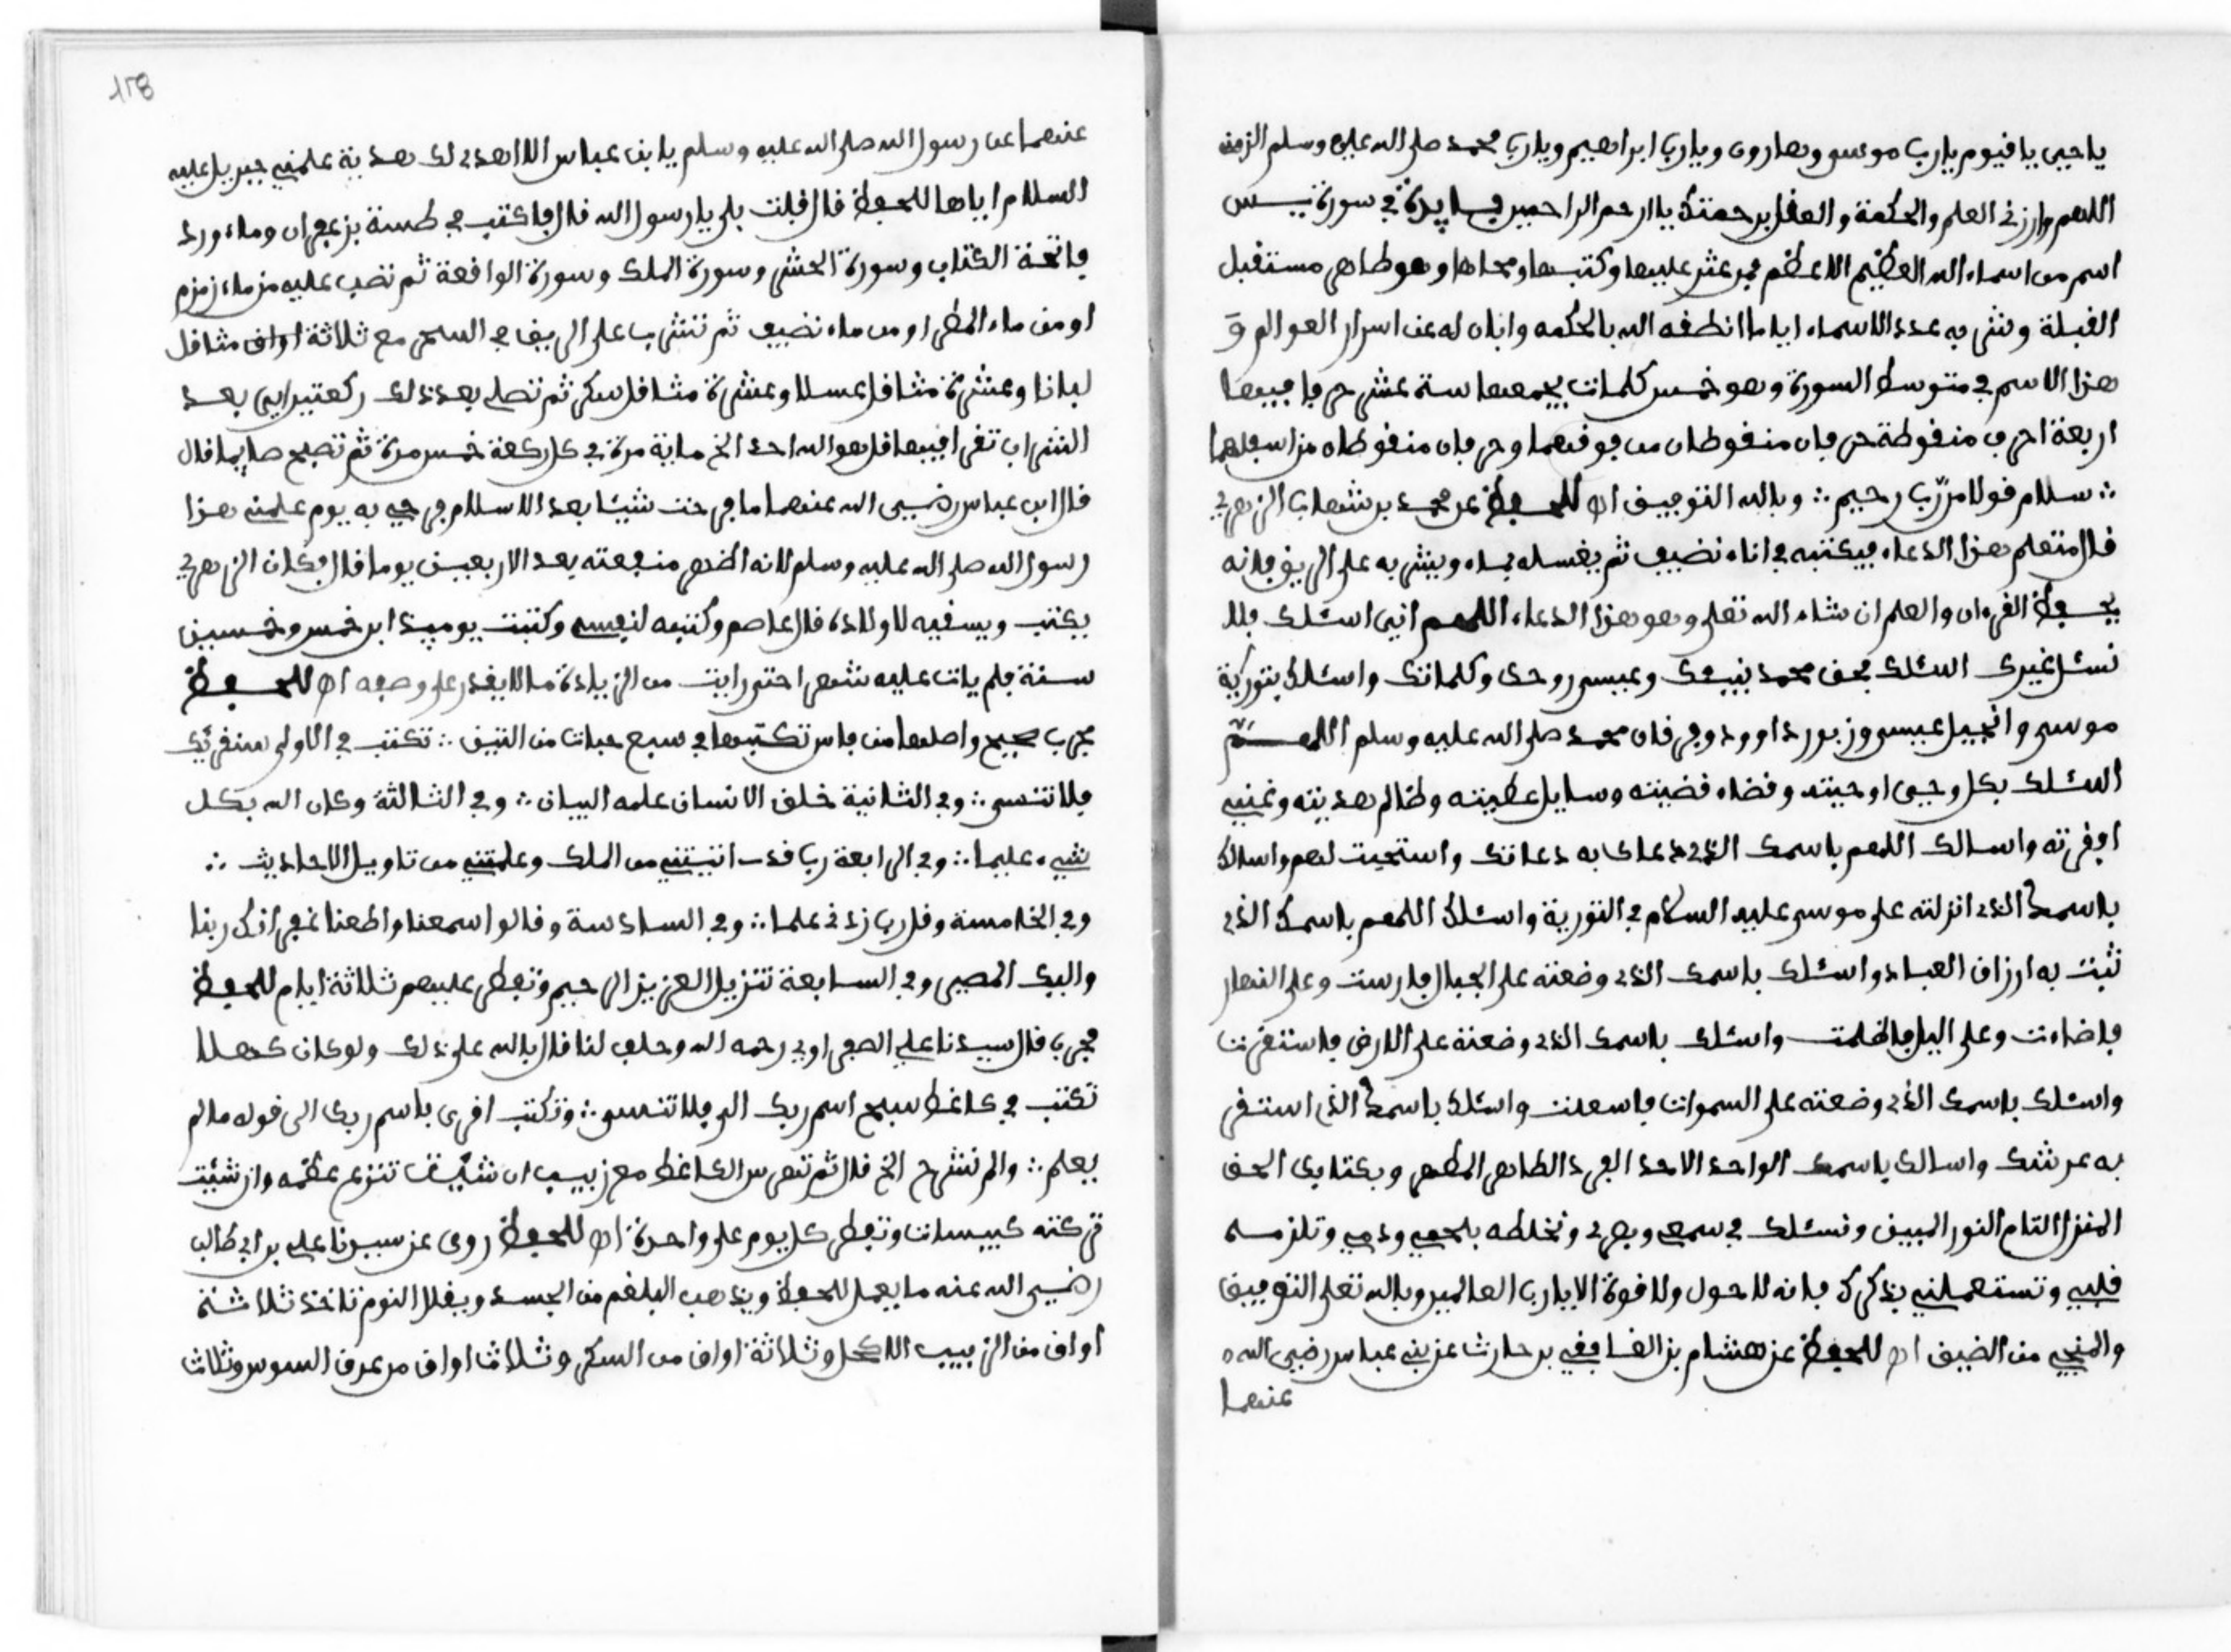 يا حيى يا قيوم يا رب موسى وهارون ويا رب ابراهيم ويا رب محمد صلى الله عليه وسلم الزمنى
اللهم وارزقنى العلم والحكمة والعقل برحمتك يا ارحم الراحمين فايدة في سورة يــس
اسم من اسماء الله العظيم الاعظم فمن عثر عليها وكتبها ومحاها وهو طاهر مستقبل
القبلة وشربه عدد الاسماء اياما انطقه الله بالحكمه وابان له عن اسرار العوالم و
هذا الاسم في متوسط السورة وهو خمس كلمات يجمعها ستة عشر حرفا فيها
اربعة احرف منقوطة حرفان منقوطان من فوقهما وحرفان منقوطاه من اسفلهما
سلام قولا من رّب رحيم ∴ وبالله التوفيق اه للحفظ عن محمد بن شهاب الزهري
قال من تعلم هذا الدعاء فيكتبه في اناء نضيف ثم يغسله بماء ويشربه على الريق فانه
يحفظ القرءان والعلم ان شاء الله تعلى وهو هذا الدعاء اللهم انى اسئلك فلا
نسئل غيرك اسئلك بحق محمد نبيئك وعيسى روحك وكلماتك واسئلك بتورية
موسى وانجيل عيسى وزبور داوود وفرقان محمد صلى الله عليه وسلم اللهــم
اسئلك بكل وحيى اوحيته وقضاء قضيته وسايل عطيته وظالم هديته وغنيى
افقرته واسالك اللهم باسمك الذي دعاك به دعاتك واستجبت لهم واسالك
باسمك الذي انزلته على موسى عليه السلام في التورية واسئلك اللهم باسمك الذي
ثبت به ارزاق العباد واسئلك باسمك الذي وضعته على الجبال فارست وعلى النهار
فاضاءت وعلى اليل فاظلمت واسئلك باسمك الذي وضعته على الارض فاستقرت
واسئلك باسمك الذي وضعته على السموات فاسعلت واسئلك باسمك الذي استقر
به عرشك واسالك باسمك الواحد الاحد الفرد الطاهر المطهر وبكتابك الحق
المنزل التام النور المبين ونسئلك في سمعى وبصري وتخلطه بلحمى ودمى وتلزمــه
قلبى وتستعملنى بذكرك فانه لا حول ولا قوة الا يا رب العالمين وبالله تعلى التوفيق
والمنجى من الضيق اه للحفظ عن هشام بن القافى بن حارث عن بنى عباس رضى الله
عنهما
١٣٨
عنهما عن رسول الله صلى الله عليه وسلم يا بن عباس الا اهدي لك هدية علمنى جبريل عليه
السلام اياها للحفظ قال قلت بلى يا رسول الله قال فاكتب في طسة بزعفران وماء ورد
فاتحة الكتاب وسورة الحشر وسورة الملك وسورة الواقعة ثم تصب عليه من ماء زمزم
او من ماء المطر او من ماء نضيف ثم تشرب على الريق في السحر مع ثلاثة اواق مثاقل
لبانا وعشرة مثاقل عسلا وعشرة مثاقل سكر ثم تصلى بعد ذلك ركعتين اي بعد
الشراب تقرا فيها قل هو الله احد الخ ماية مرة في كل ركعة خمسن مرة ثم تصبح صايما قال
قال ابن عباس رضى الله عنهما ما فرحت شيئا بعد الاسلام فرحى به يوم علمنى هذا
رسول الله صلى الله عليه وسلم لانه اظهر منفعته بعد الاربعين يوما قال فكان الزهري
يكتب ويسقيه لاولاده قال عاصم وكتبه لنفسى وكتبت يوميذ ابن خمس وخمسين
سنة فلم يات عليه شهر احتى رايت من الزيادة ما لا يقدر على وصفه اه للحفظ
مجرب صحيح واصلها من فاس تكتبها في سبع حبات من التين ∴ تكتب في الاولى سنقرئك
فلا تنسى ∴ وفي الثانية خلق الانسان علمه البيان ∴ وفي الثالثة وكان الله بكل
شىء عليما ∴ وفي الرابعة رب قد اتيتنى من الملك وعلمتنى من تاويل الاحاديث ∴
وفي الخامسة وقل رب زدنى علما ∴ وفي السادسة وقالوا سمعنا واطعنا غفرانك ربنا
واليك المصير وفي السابعة تنزيل العزيز الرحيم وتفطر عليهم ثلاثة ايام للحفظ
مجرب قال سيدنا على الصفراوى رحمه الله وحلف لنا قال بالله على ذلك ولو كان كهلا
تكتب في كاغط سبح اسم ربك الى فلا تنسى ∴ وتكتب اقرى باسم ربك الى قوله ما لم
يعلم ∴ والم نشرح الخ قال ثم تهرس الكاغط مع زبيب ان شئت تنزع عظمه وان شئت
تركته كبيسات وتفطر كل يوم على واحدة اه للحفظ روى عن سيدنا على بن ابي طالب
رضى الله عنه ما يعمل للحفظ ويذهب البلغم من الجسد ويقلل النوم تاخذ ثلاثة
اواق من الزبيب الاكحل وثلاثة اواق من السكر وثلاثا اواق من عرق السوس وثلاثا